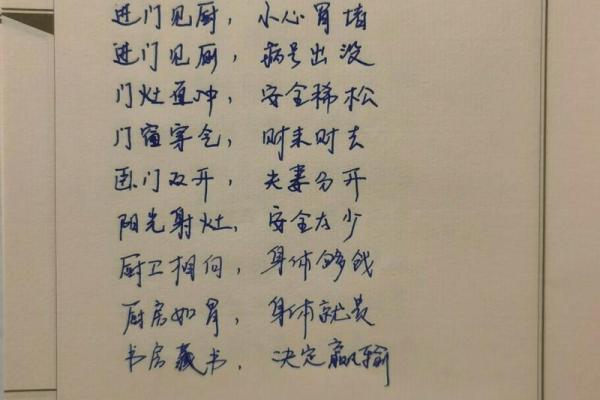 进门见厨，小心胃堵
进门见厕，病号出没
门灶直冲，安全稀松
门窗穿气，财来财去
卧门双开，夫妻分开
阳光射灶，安全太少
厨卫相向，身体够呛
厨房如胃，身体就是
书房藏书，决定赢输